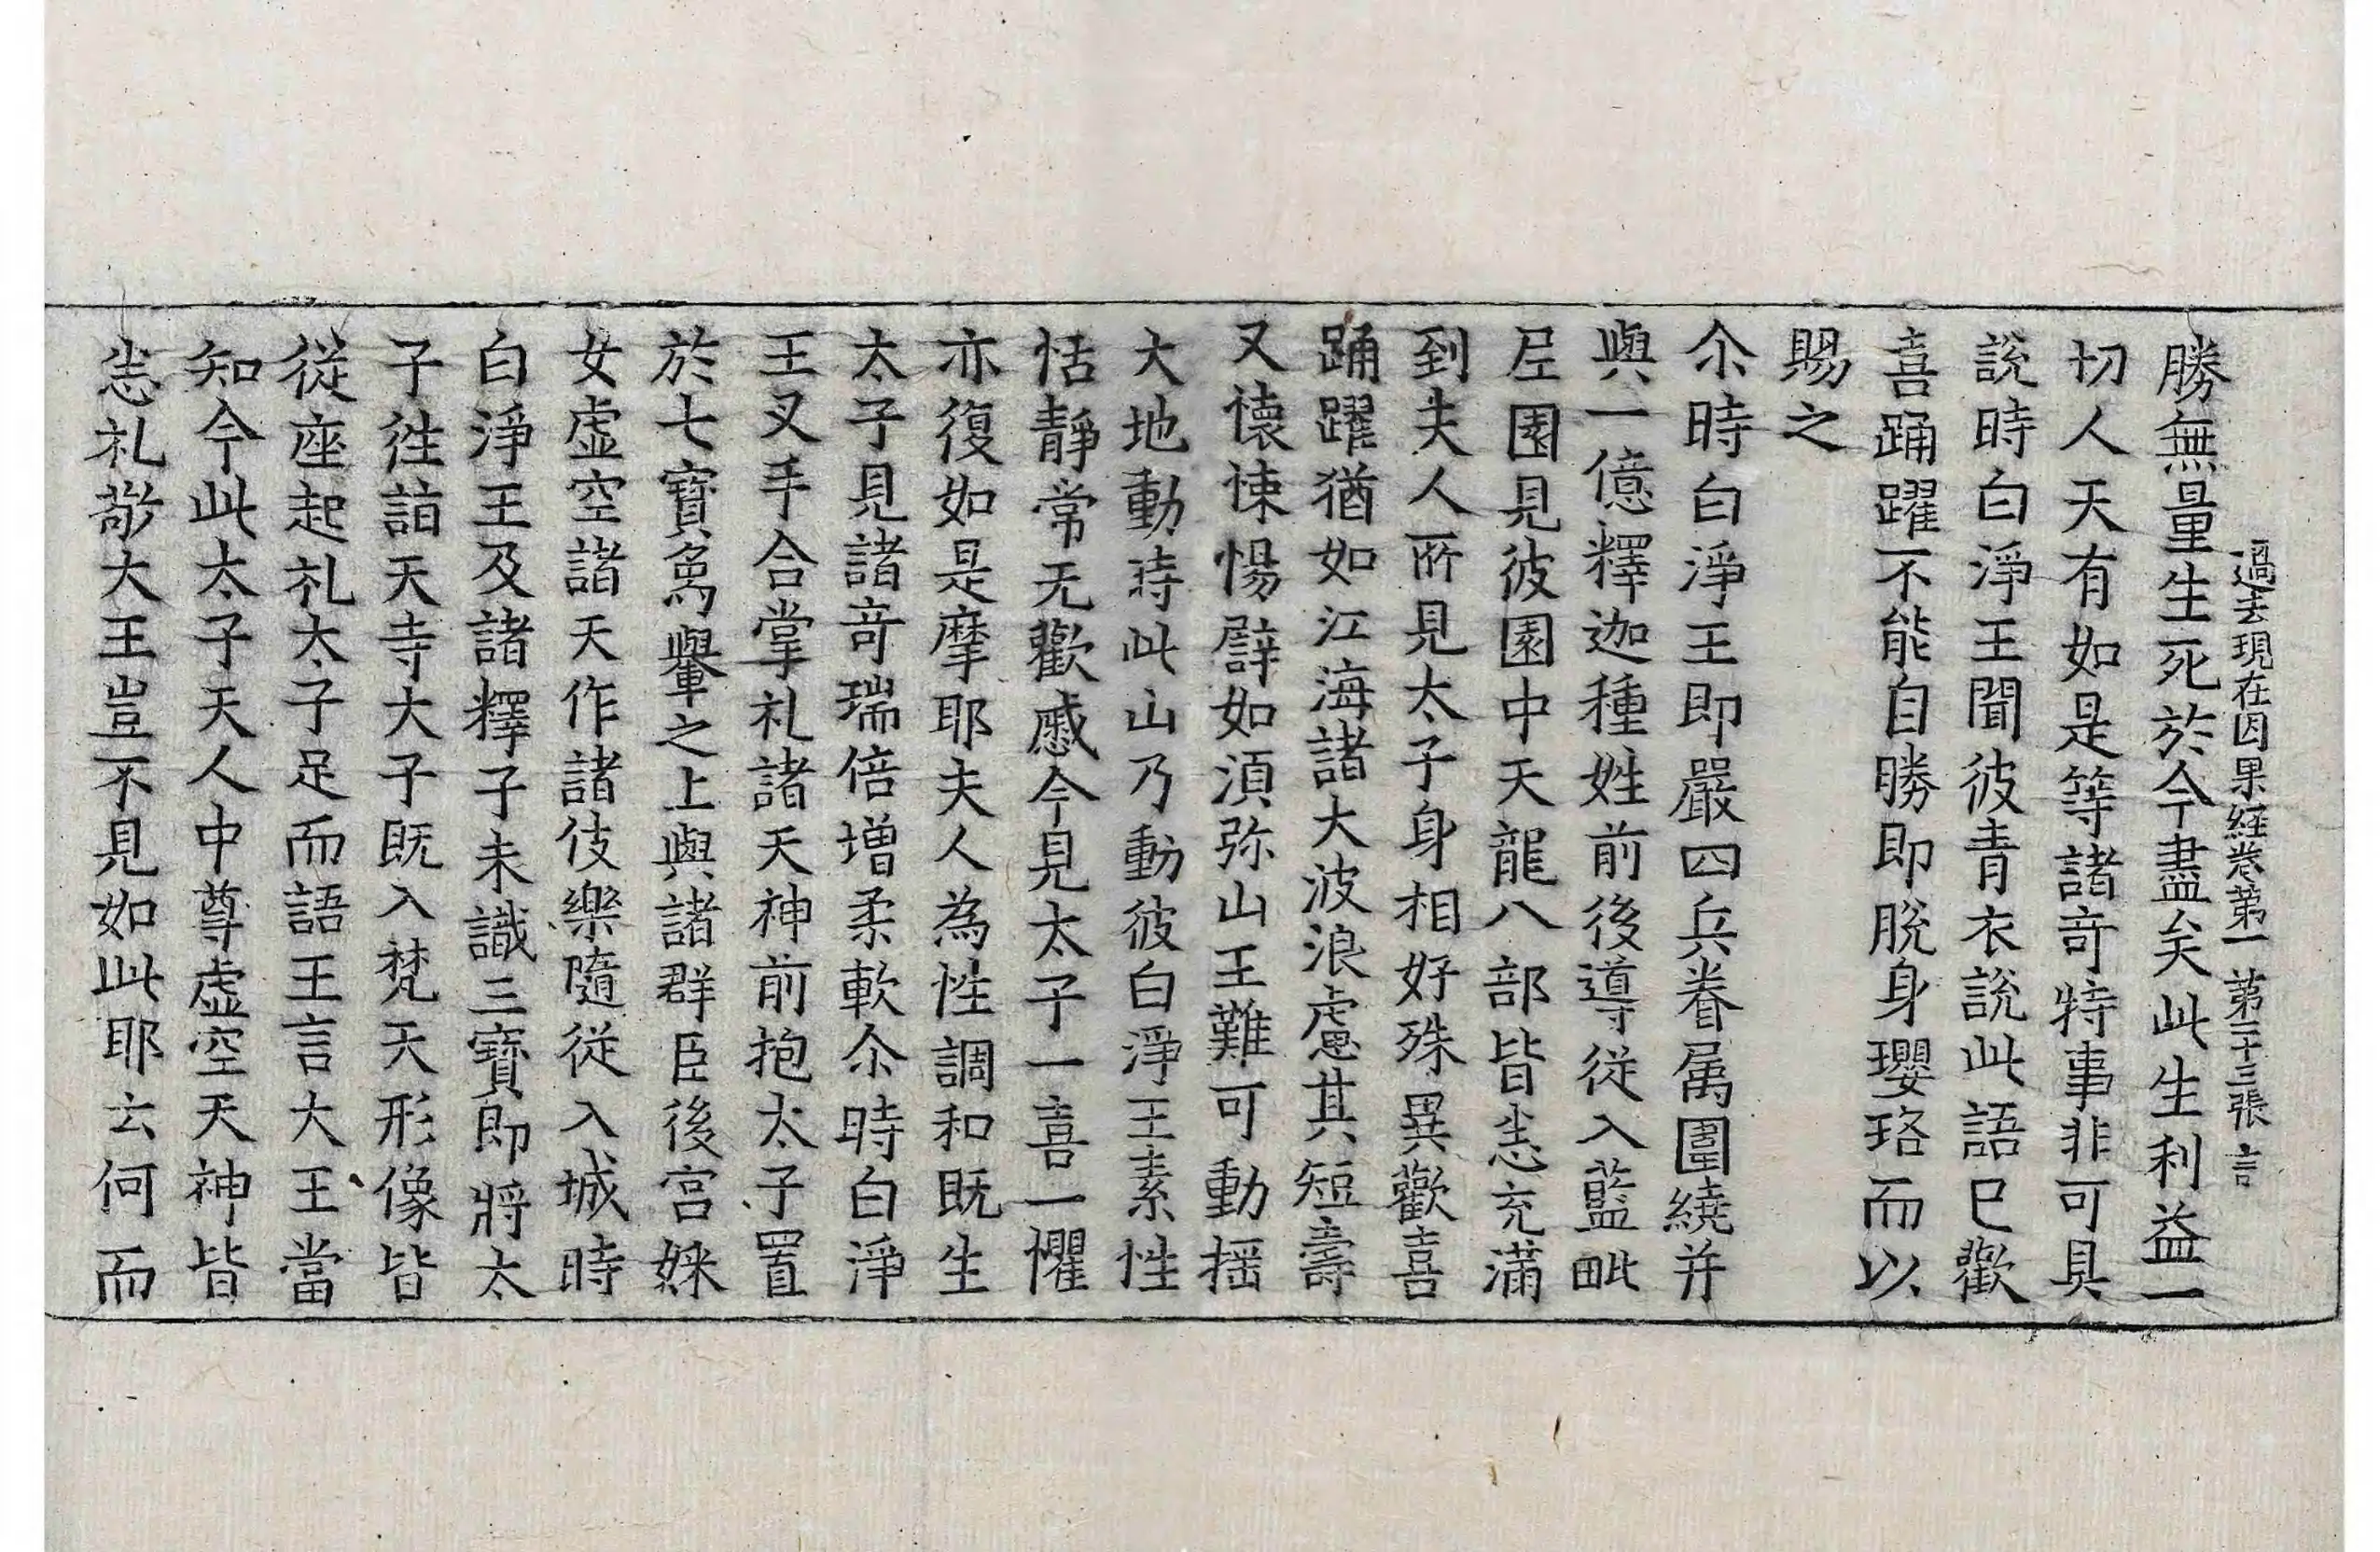 過去現在因果経卷第一　第二十三張　言
勝無量生死於今盡矣此生利益一
切人天有如是等諸竒特事非可具
說時白淨王聞彼青衣說此語已歡
喜踊躍不能自勝即脫身瓔珞而以
賜之
尒時白淨王即嚴四兵眷属圍繞并
與一億釋迦種姓前後導從入藍毗
尼園見彼園中天龍八部皆悉充滿
到夫人所見太子身相好殊異歡喜
踊躍猶如江海諸大波浪慮其短壽
又懷悚惕譬如湏弥山王難可動揺
大地動時此山乃動彼白淨王素性
恬靜常无歡慼今見太子一喜一懼
亦復如是摩耶夫人為性調和既生
太子見諸竒瑞倍增柔軟尒時白淨
王叉手合掌礼諸天神前抱太子置
於七寶象轝之上與諸群臣後宮婇
女虛空諸天作諸伎樂隨從入城時
白淨王及諸釋子未識三寶即將太
子往詣天寺太子既入梵天形像皆
從座起礼太子足而語王言大王當
知今此太子天人中尊虛空天神皆
悉礼敬大王豈不見如此耶云何而